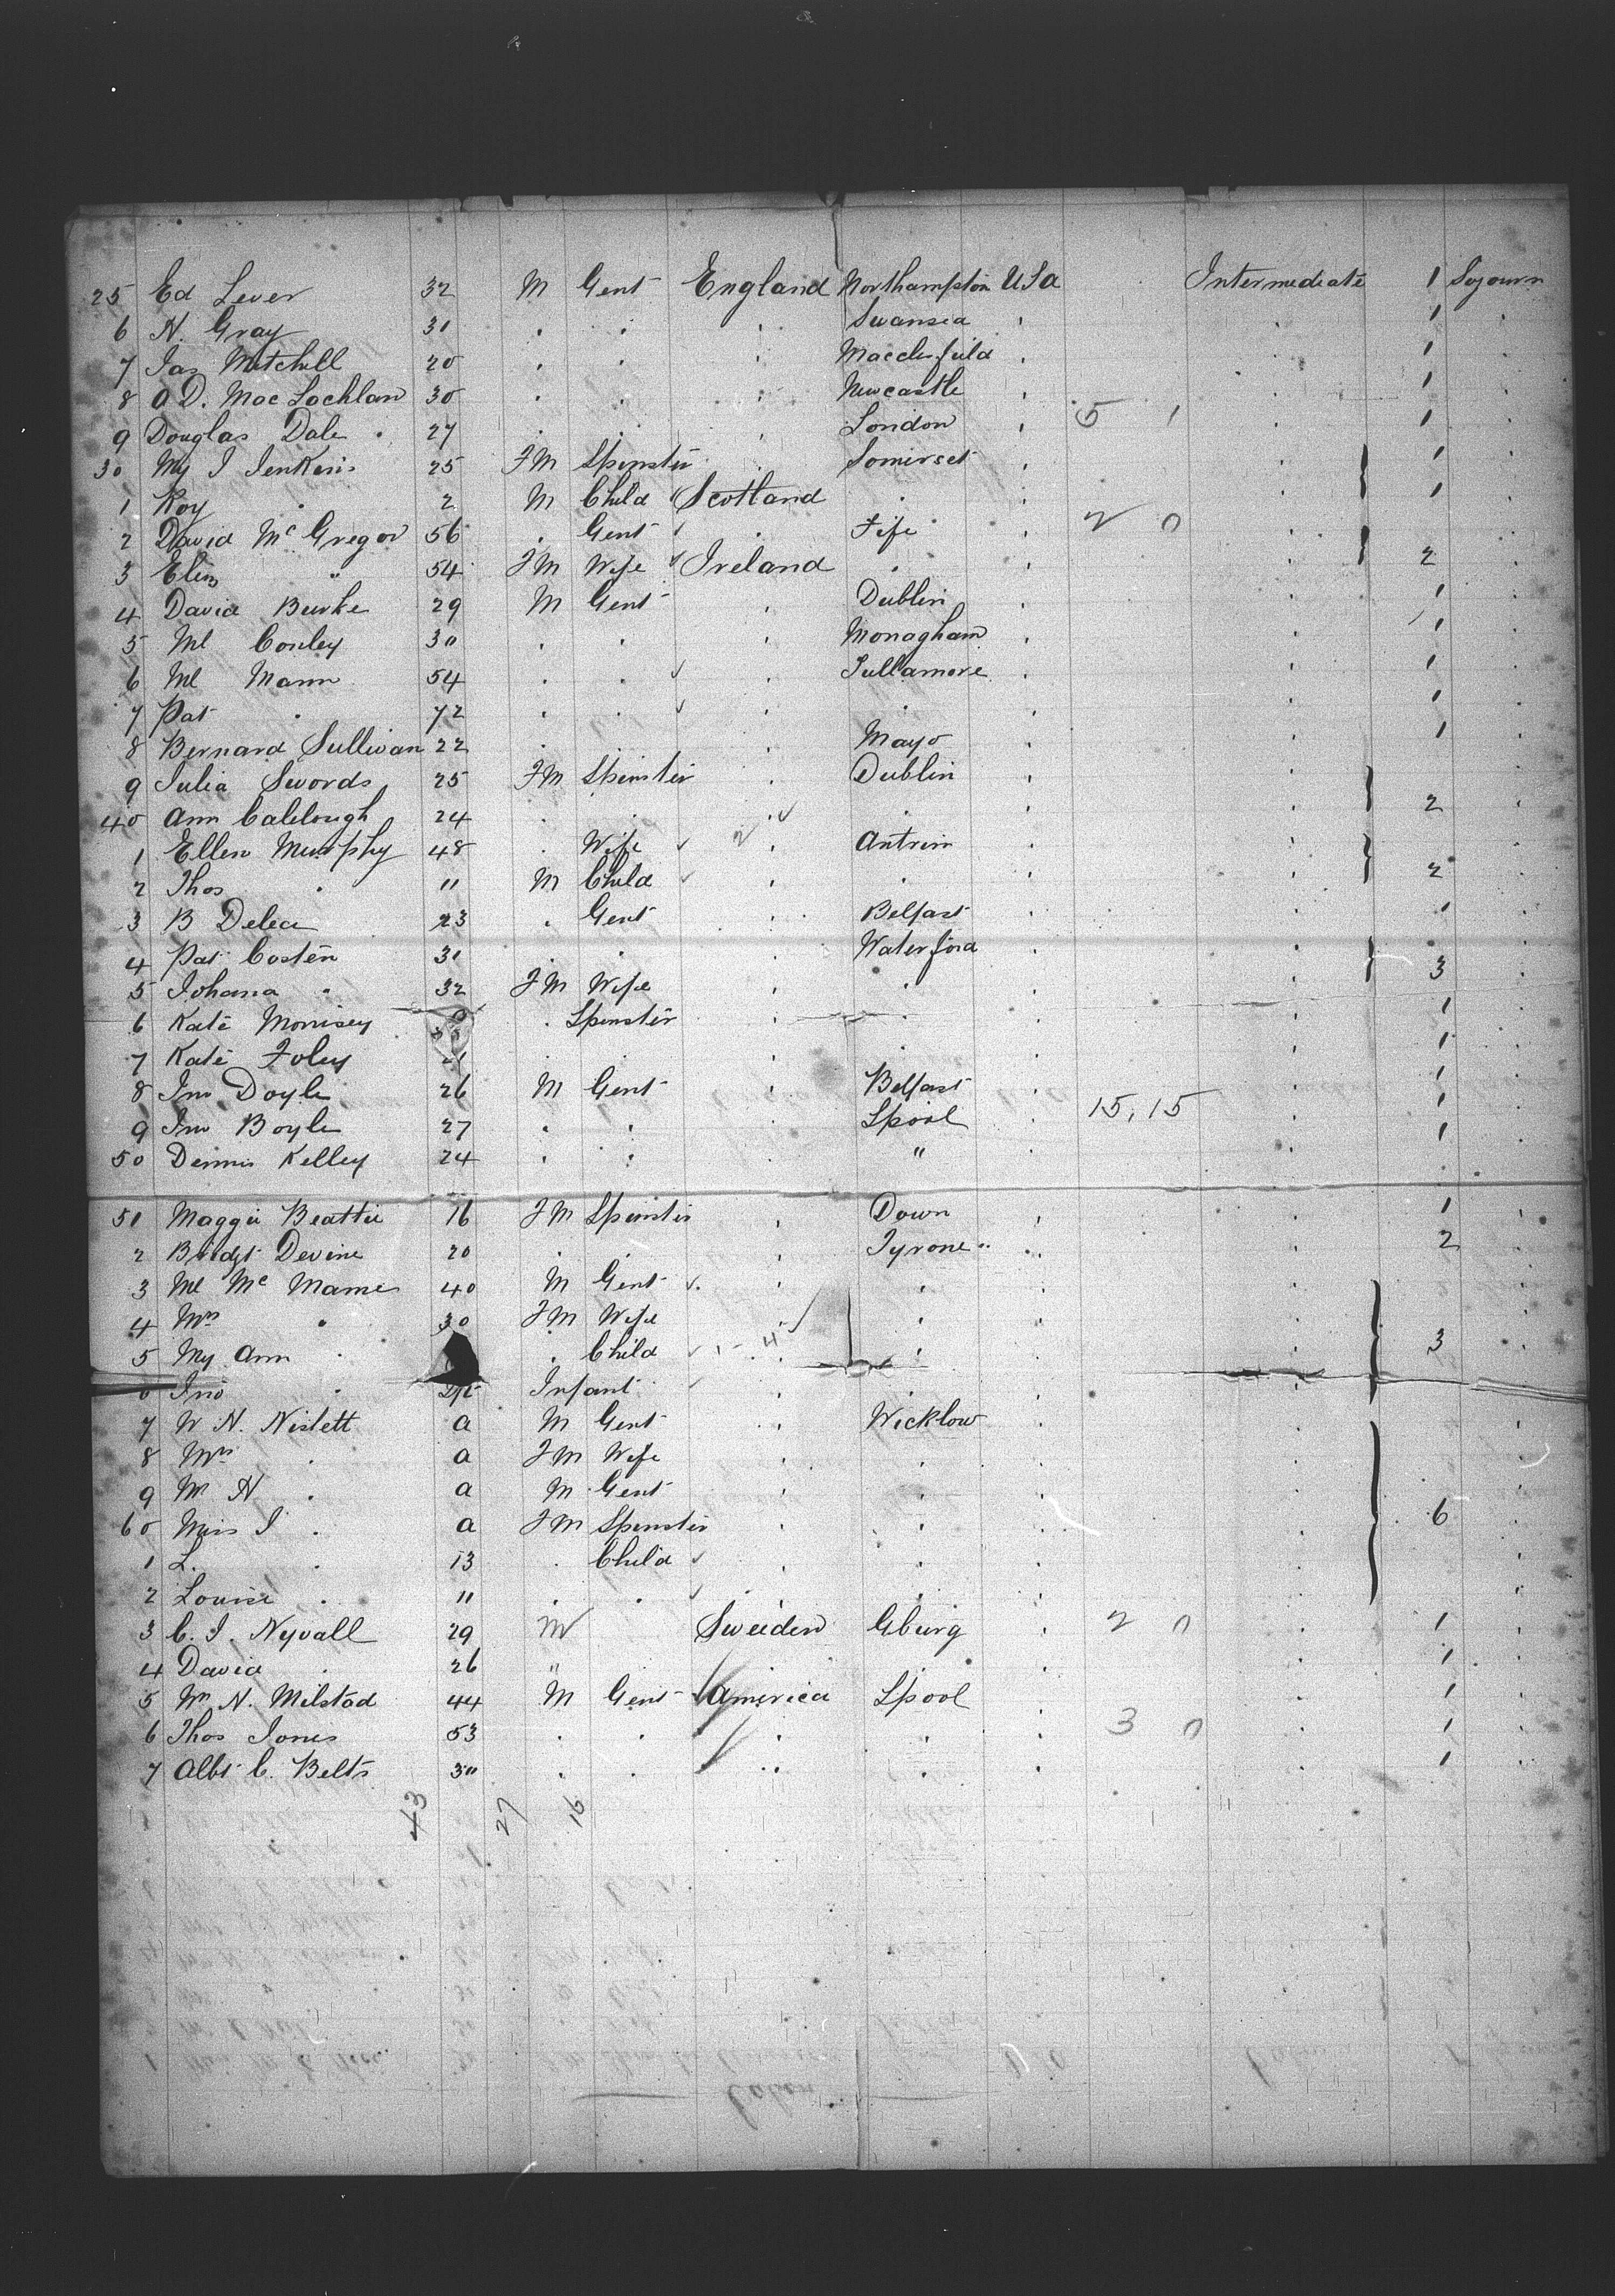 25 Ed Lever 32 M Gent England Northampton USa Intermediate 1 Sojourn
6 H. Gray 31 " " " Swansea " " 1 "
7 Jas Mitchell 20 " " " Macclesfield " " 1 "
8 D. MacLachlan 30 " " " Newcastle " " 1 "
9 Douglas Dale 27 " " " London " 5 1 " 1 "
30 My J Jenkins 25 FM Spinster " Somerset " " 1 "
1 Roy " 2 M Child Scotland " " " 1 "
2 David McGregor 56 " Gent " Fife " 2 0 "
3 Elen " 54 FM Wife Ireland " " " 2 "
4 David Burke 29 M Gent " Dublin " " 1 "
5 Ml Conley 30 " " " Monagham " " 1 "
6 Ml Mann 54 " " " Tullamore " " 1 "
7 Pat " 72 " " " " " " 1 "
8 Bernard Sullivan 22 " " Mayo " " 1 "
9 Julia Swords 25 FM Spinster " Dublin " "
40 Ann Calclough 24 " " " " " " 2 "
1 Ellen Murphy 48 " Wife 2 " Antrim " "
2 Thos " 11 M Child " " " " 2 "
3 B Delea 23 " Gent " Belfast " " 1 "
4 Pat Costen 31 " " " Waterford " " 3 "
5 Johana " 32 FM Wife " " " "
6 Kate Morrisey " Spinster " " " " 1 "
7 Kate Foley 21 " " " " " " 1 "
8 Jno Doyle 26 M Gent " Belfast " " 1 "
9 Jno Boyle 27 " " " Lpool " 15, 15 " 1 "
50 Dennis Kelley 24 " " " " " 1 "
51 Maggie Beattie 16 FM Spinster " Down " " 1 "
2 Bridgt Devine 20 " " " Tyrone " " 2 "
3 Ml McMame 40 M Gent " " " "
4 Mrs " 30 FM Wife " " " "
5 My Ann " " Child 1 - 4 " " " " 3 "
6 Jno " Infant " " " "
7 W H. Nislett a M Gent " Wicklow " "
8 Mrs " a FM Wife " " " "
9 Mr H " a M Gent " " " "
60 Miss J " a FM Spinster " " " " 6 "
1 L. " 13 " Child " " " "
2 Louise " 11 " " " " " "
3 C. J. Nyvall 29 M Sweeden Gburg " 2 0 " 1 "
4 David " 26 " " " " " 1 "
5 Wm H. Milstod 44 M Gent America Lpool " " 1 "
6 Thos Jones 53 " " " " " 3 0 " 1 "
7 Albt C. Belts 30 " " " " " " 1 "
43 27 16